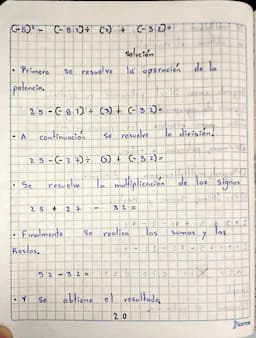 (-5)² - (-81) ÷ (3) + (-32)=
Solución
• Primero se resuelve la operación de la
potencia.
25-(-81) ÷ (3) + (-32)=
• A continuación se resuelve la división.
25-(-27)÷ (3) + (-32)=
• Se resuelve la multiplicación de los signos
25 + 27 - 32 =
• Finalmente se realiza las sumas y las
Restas.
52-32=
• Y se obtiene el resultado
20